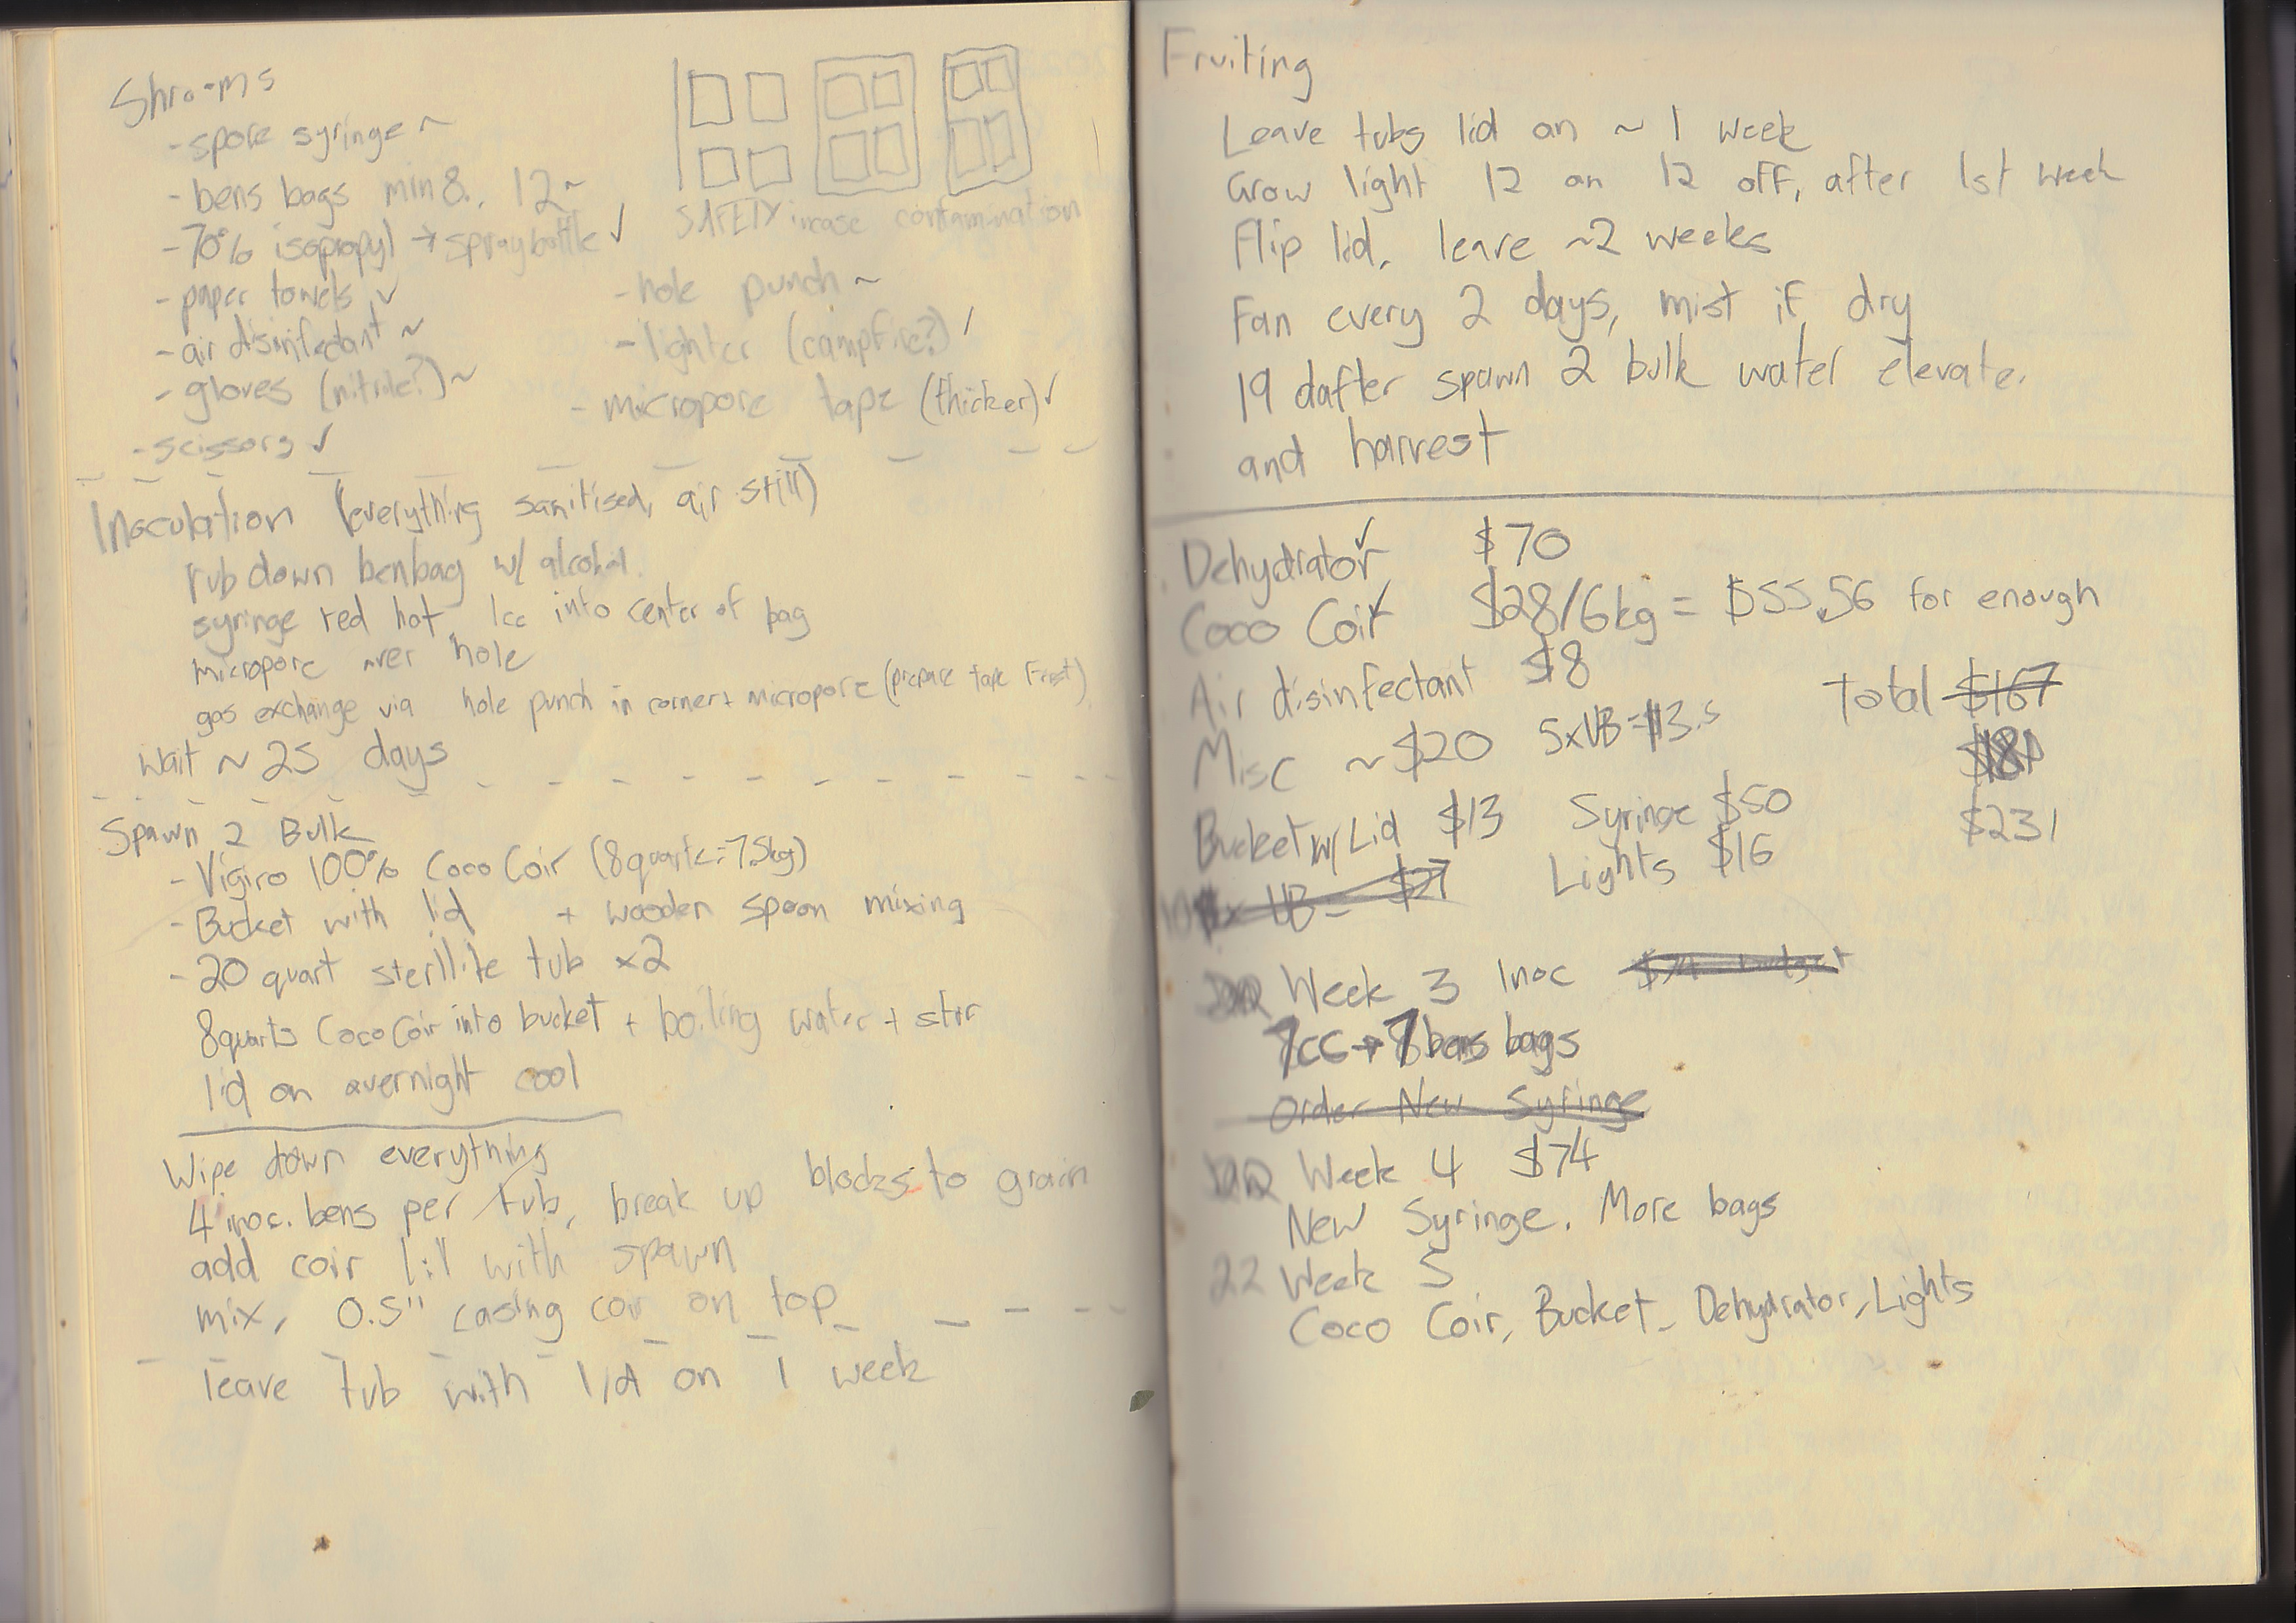 Shrooms
- spore syringe ~
- bens bags min 8., 12 ~
- 70% isopropyl → spray bottle ✓
- paper towels ✓
- air disinfectant ~
- gloves (nitrile?) ~
- scissors ✓
SAFETY incase contamination
- hole punch ~
- lighter (campfire?) ✓
- micropore tape (thicker) ✓
Inoculation (everything sanitised, air still)
rub down benbag w/ alcohol.
syringe red hot, 1cc into center of bag
micropore over hole
gas exchange via hole punch in corner + micropore (prepare tape First)
wait ~ 25 days
Spawn 2 Bulk
- Vigiro 100% Coco Coir (8 quarts = 7.5kg)
- Bucket with lid + wooden spoon mixing
- 20 quart sterilite tub x2
8 quarts Coco Coir into bucket + boiling water + stir
lid on overnight cool
Wipe down everything
4 inoc. bens per tub, break up blocks to grain
add coir 1:1 with spawn
mix, 0.5" casing coir on top
leave tub with lid on 1 week
Fruiting
Leave tubs lid on ~ 1 week
Grow light 12 on 12 off, after 1st week
Flip lid, leave ~2 weeks
Fan every 2 days, mist if dry
19 dafter spawn 2 bulk water elevate.
and harvest
Dehydrator ✓ $70
Coco Coir ✓ $28/6kg = $55.56 for enough
Air disinfectant $8
Misc ~ $20 5xUB = $13.5
Total $167
$181
$231
Bucket w/ Lid $13 Syringe $50
10x UB = $27 Lights $16
Week 3 Inoc $74 budget
7cc → 7 bens bags
Order New Syringe
Week 4 $74
New Syringe. More bags
22 Week 5
Coco Coir, Bucket, Dehydrator, Lights